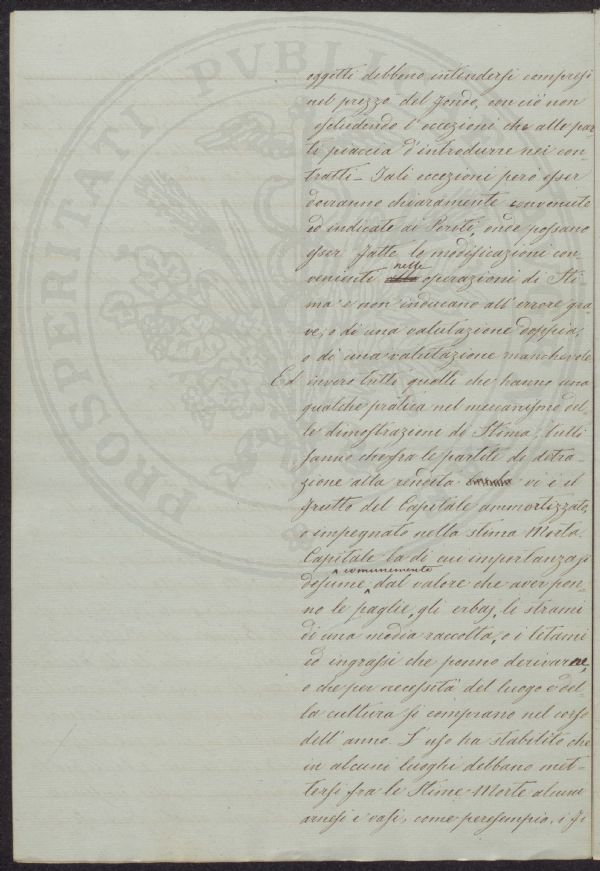 PROSPERITATI PVBLICAE
oggetti debbono intendersi compresi
nel prezzo del fondo, con ciò non
escludendo l'eccezioni che alle par
ti piaccia d'introdurre nei con-
tratti_ Tali eccezioni però esser
dovranno chiaramente convenute
ed indicate ai Periti, onde possano
esser fatte le modificazioni con
nelle
venienti operazioni di Sti-
ma e non inducano all'errore gra
ve, o di una valutazione doppia,
o di una valutazione manchevole
Ed invero tutti quelli che hanno una
qualche pratica nel meccanismo del-
le dimostrazioni di Stima, tutti
sanno che fra le partite di detra-
zione alla rendita vi è il
frutto del Capitale ammortizzato,
o impegnato nella stima Morta.
Capitale la di cui importanza si
comunemente
desume, dal valore che aver pon-
no le paglie, gli erbaj, li strami
di una media raccolta, o i letami
ed ingrassi che ponno derivarne,
o che per necessità del luogo e del
la cultura si comprano nel corso
dell'anno. L'uso ha stabilito che
in alcuni luoghi debbano met-
tersi fra le Stime Morte alcuni
arnesi e vasi, come per esempio, i ti